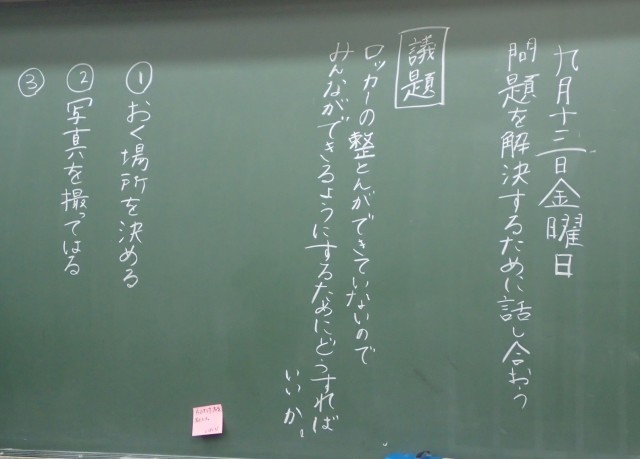 九月十三日金曜日
問題を解決するために話し合おう
議題
ロッカーの整とんができていないので
みんなができるようにするためにどうすれば
いいか。
① おく場所を決める
② 写真を撮ってはる
③